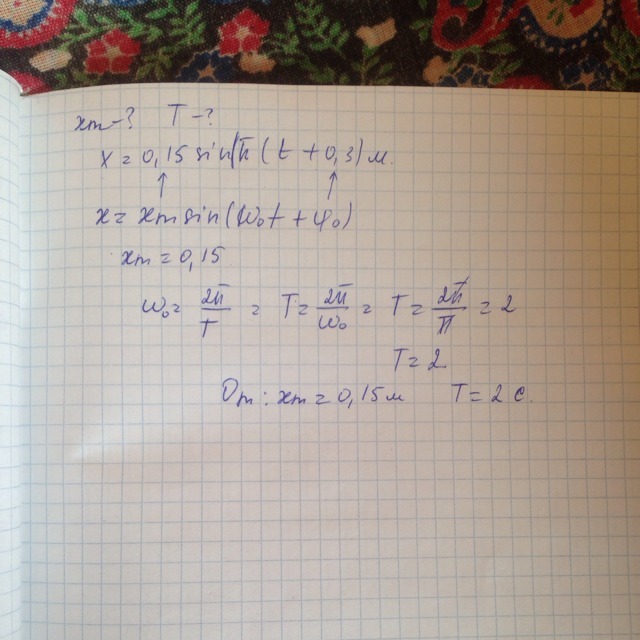 xm-? T-?
x = 0,15 sin π (t + 0,3) м.
↑ ↑
x = xm sin (ω₀t + φ₀)
xm = 0,15
ω₀ = 2π/T = T = 2π/ω₀ = T = 2π/π = 2
T = 2
От: xm = 0,15 м T = 2 с.